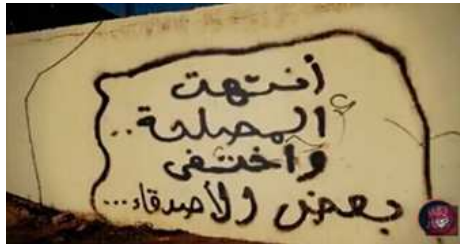 أنتهت
المصلحة..
واختفى
بعض الأصدقاء...